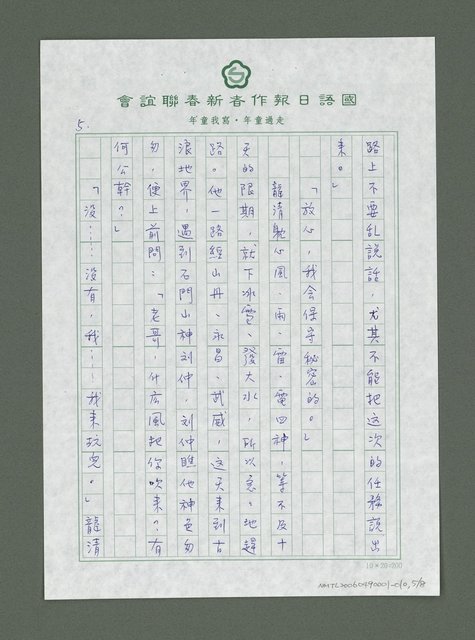 國語日報作者新春聯誼會
走過童年・寫我童年
5.
路上不要乱說話，尤其不能把這次的任務說出
来。」
「放心，我会保守秘密的。」
龍清躭心風、雨、雷、電四神，等不及十
天的限期，就下冰雹、發大水，所以急〻地趕
路。他一路經山丹、永昌、武威，這天来到古
浪地界，遇到石門山神刘仲，刘仲瞧他神色匆
匆，便上前問：「老哥，什広風把你吹来？有
何公幹？」
「没……没有，我……我来玩兒。」龍清
10×20=200
NMTL20060490001-010, 5/8